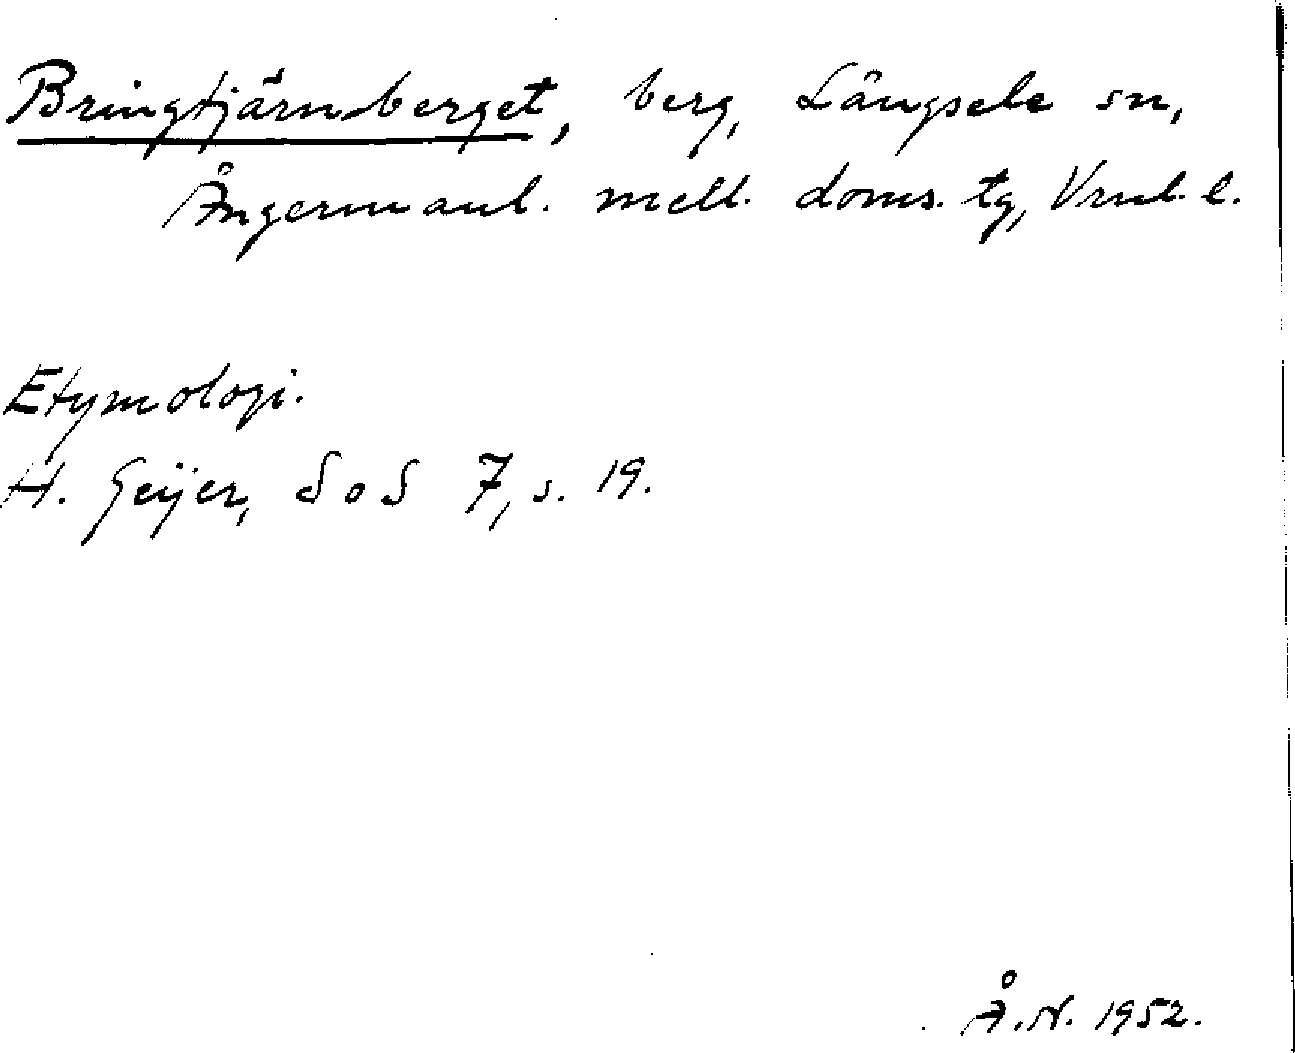 Bringtjärnsberget, berg, Långsele sn,
Ångermanl. mell. doms. tg, Vrnl. l.
Etymologi.
H. Geijer, SoS 7, s. 19.
Å.N. 1952.